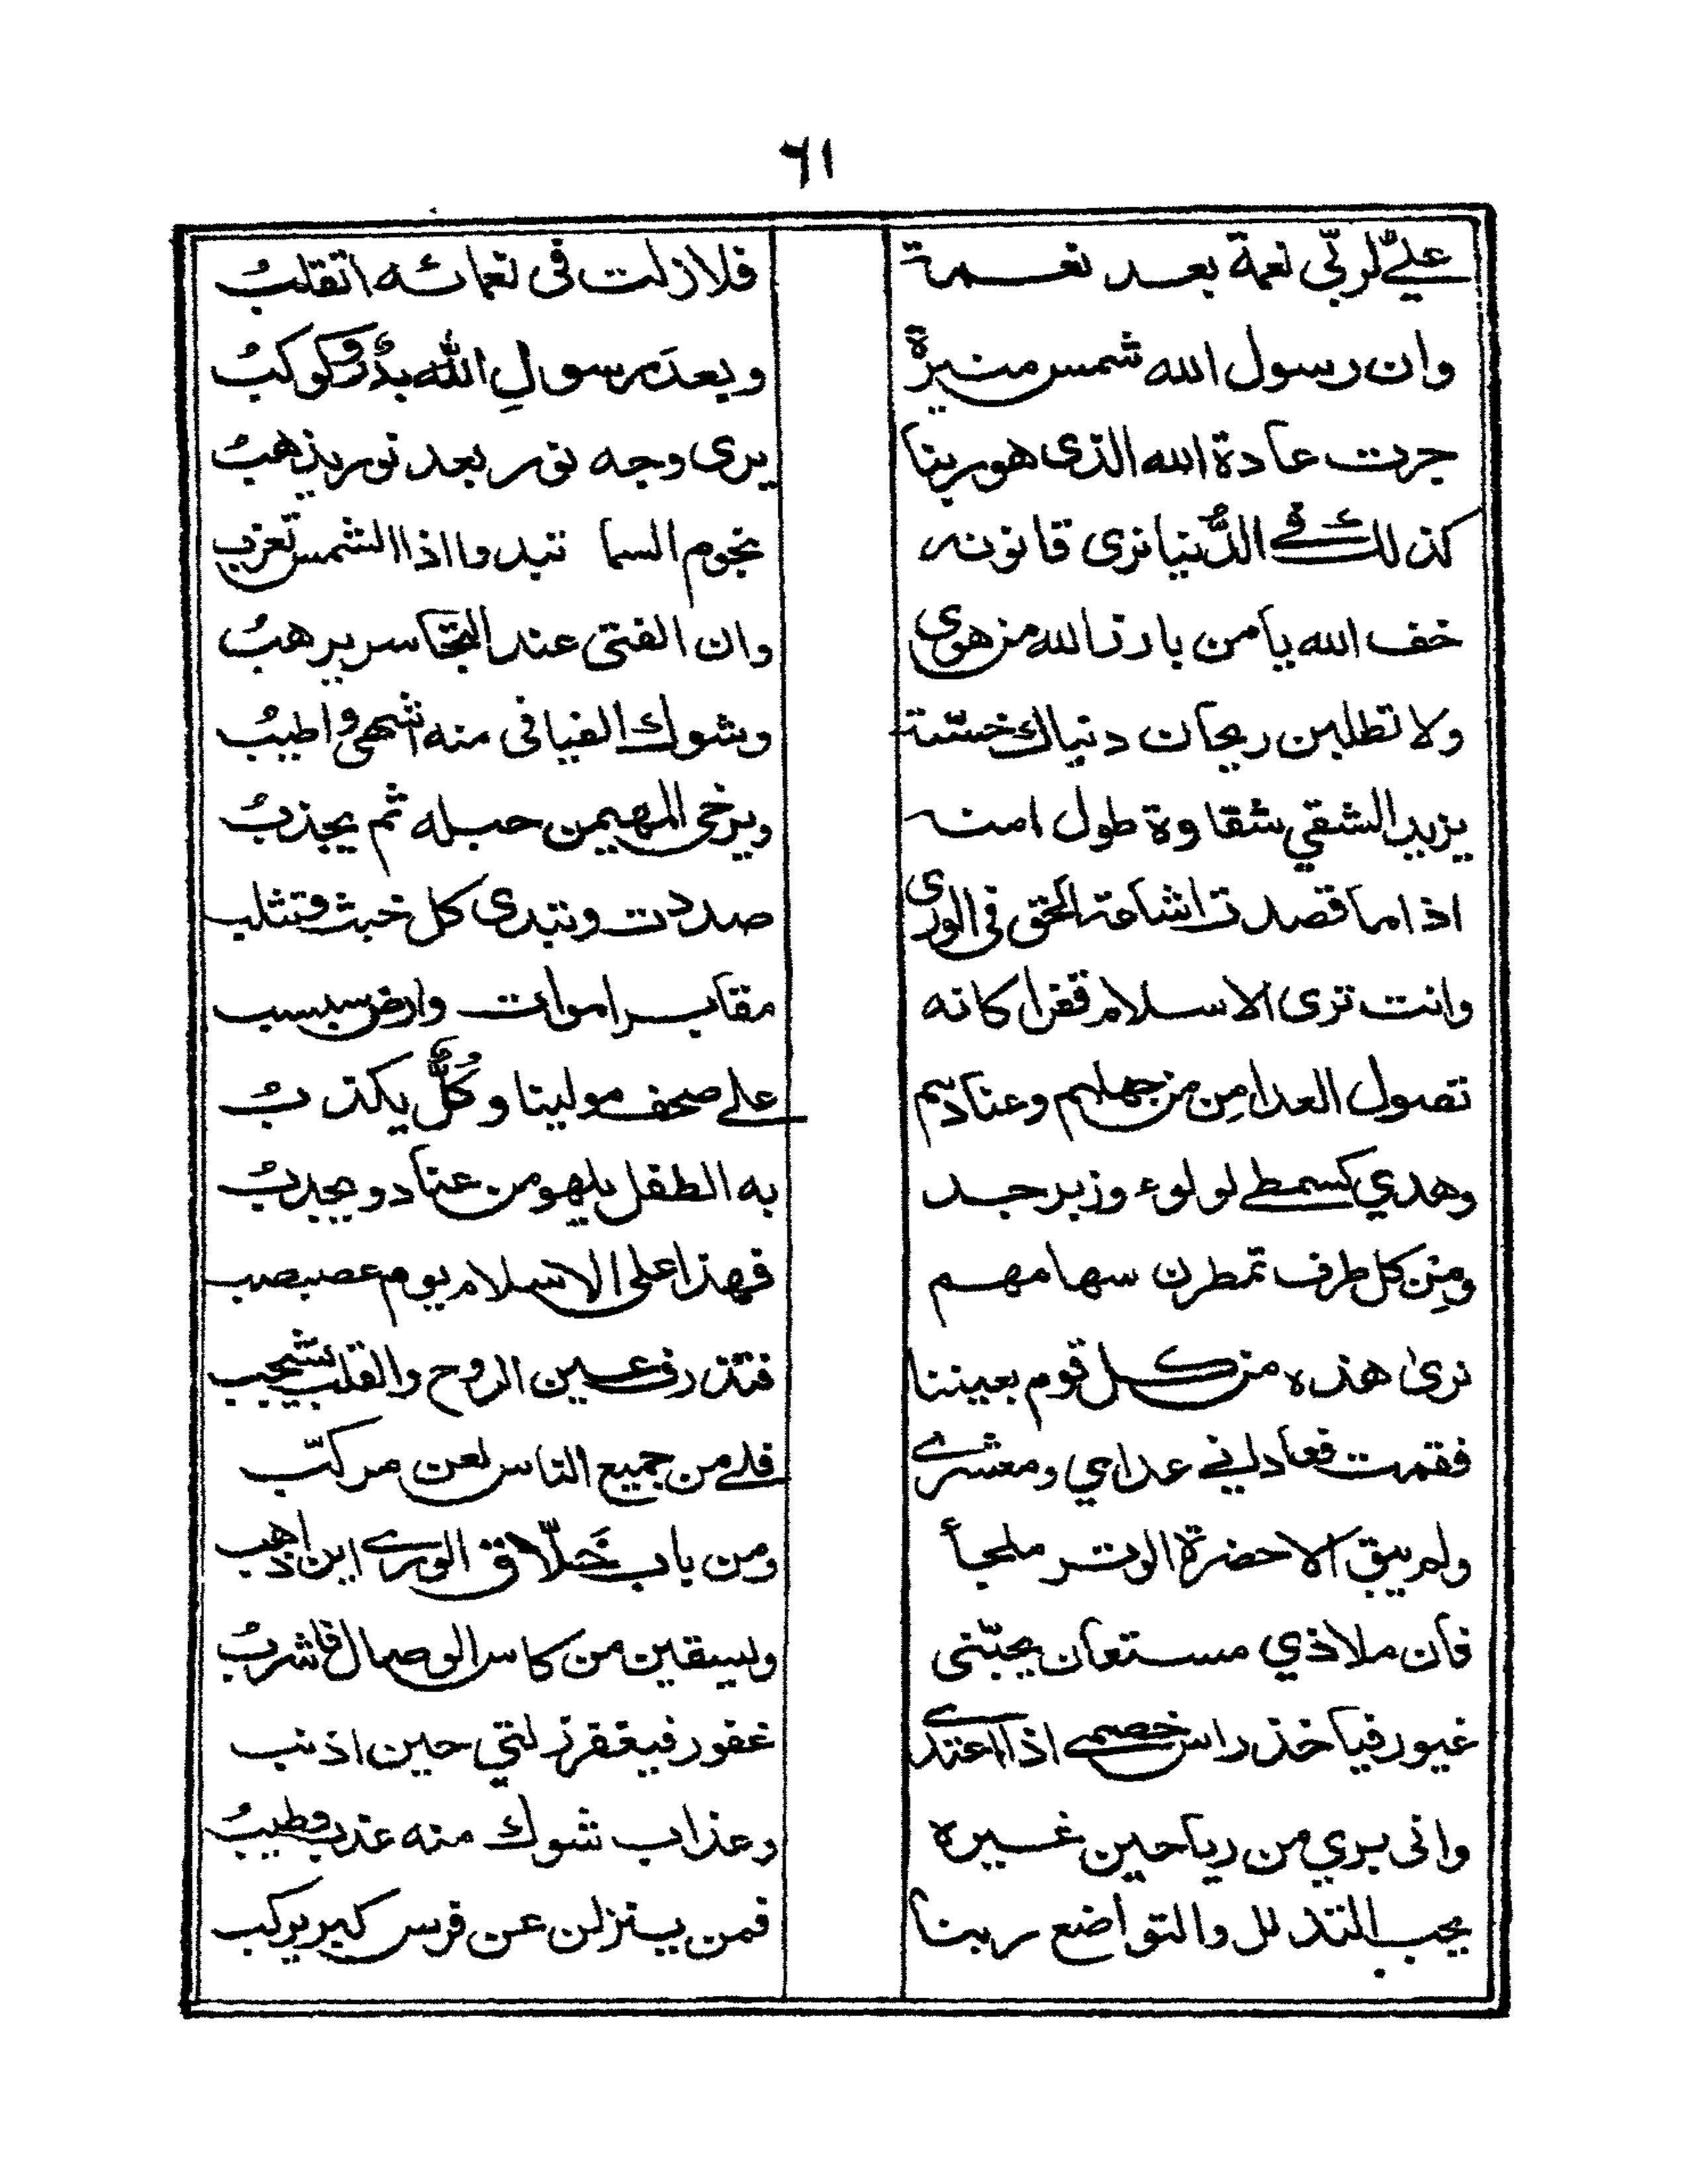 ٦١
علىَّ لربّي نعمة بعد نعمة فلا زلت فى نعمائه اتقلبُ
وان رسول الله شمس منيرةٌ وبعدَ رسولِ الله بدرٌ وكوكبُ
جرت عادة الله الذى هو ربنا يرى وجه نور بعد نور يذهبُ
كذلك في الدُّنيا نرى قانونه نجوم السما تبدو اذا الشمس تغرب
خف الله يا من بارز الله من هوى وان الفتى عند التجاسر يرهبُ
ولا تطلبن ريحان دنياك خسّة وشوك الفيافى منه اشهى واطيبُ
يزيد الشقي شقاوة طول امنه ويرخى المهيمن حبله ثم يجذبُ
اذا ما قصدت اشاعة الحق فى الورى صددت وتبدى كل خبث وتثلب
وانت ترى الاسلام قفرا كانه مقابر اموات وارض سبسب
تصول العدا من جهلهم وعنادهم على صحف مولينا وكُلٌّ يكذبُ
وهدي كسمطے لولوء وزبرجد به الطفل يلهو من عناد ويجدبُ
ومِن كل طرف تمطرن سهامهم فهذا على الاسلام يوم عصبصب
نرىٰ هذه من كل قوم بعيننا فتذرف عين الروح والقلب يشجب
فقمت فعاداني عداي ومعشرے فلے من جميع الناس لعن مركّب
ولم يبق الا حضرة الوتر ملجأ ومن باب خَلّاق الورے اين اذهب
فان ملاذي مستعان يحبّنى ويسقين من كاس الوصال فاشربُ
غيور فياخذ راس خصمے اذا اعتدے غفور فيغفر زلتي حين اذنب
وانى بري من رياحين غيره وعذاب شوك منه عذب وطيبُ
يحب التذلل والتواضع ربنا فمن ينزلن عن فرس كبر يركب